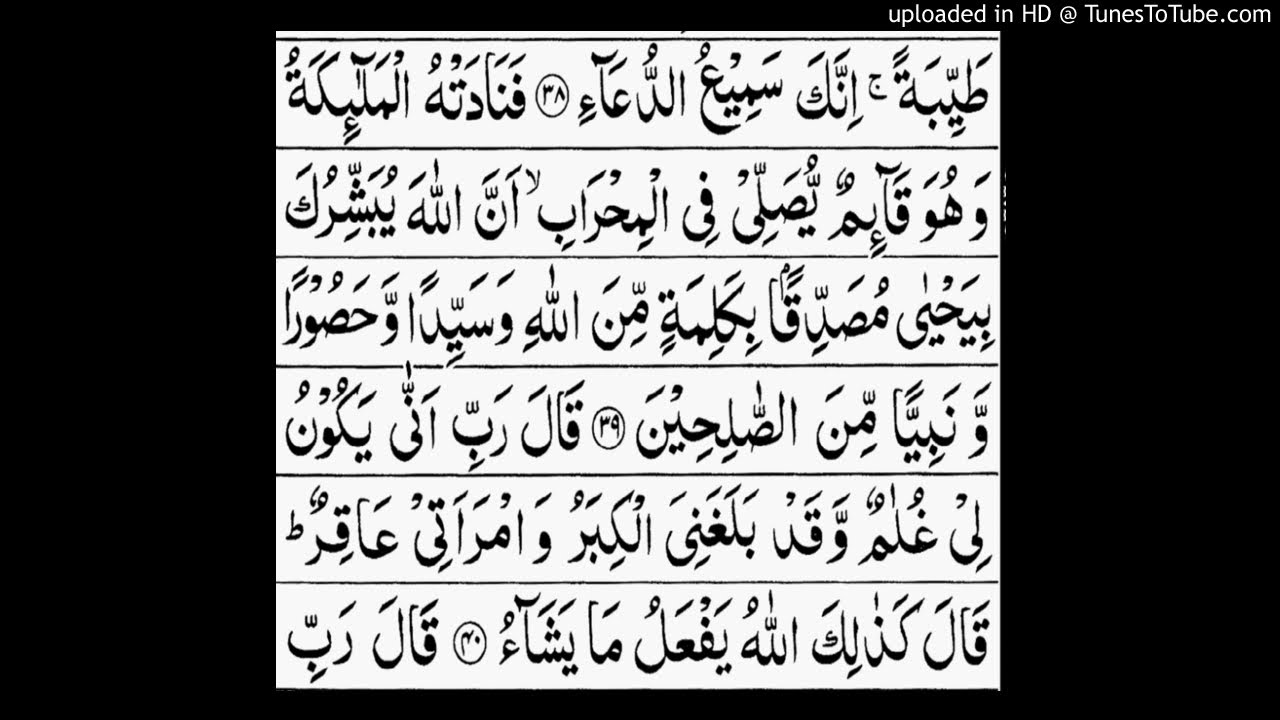 uploaded in HD @ TunesToTube.com
طَيِّبَةً ۚ اِنَّكَ سَمِيْعُ الدُّعَآءِ ﴿٣٨﴾ فَنَادَتْهُ الْمَلٰٓئِكَةُ
وَهُوَ قَآئِمٌ يُّصَلِّيْ فِى الْمِحْرَابِ ۙ اَنَّ اللّٰهَ يُبَشِّرُكَ
بِيَحْيٰى مُصَدِّقًۢا بِكَلِمَةٍ مِّنَ اللّٰهِ وَسَيِّدًا وَّحَصُوْرًا
وَّ نَبِيًّا مِّنَ الصّٰلِحِيْنَ ﴿٣٩﴾ قَالَ رَبِّ اَنّٰى يَكُوْنُ
لِيْ غُلٰمٌ وَّقَدْ بَلَغَنِىَ الْكِبَرُ وَ امْرَاَتِيْ عَاقِرٌ ؕ
قَالَ كَذٰلِكَ اللّٰهُ يَفْعَلُ مَا يَشَآءُ ﴿٤٠﴾ قَالَ رَبِّ